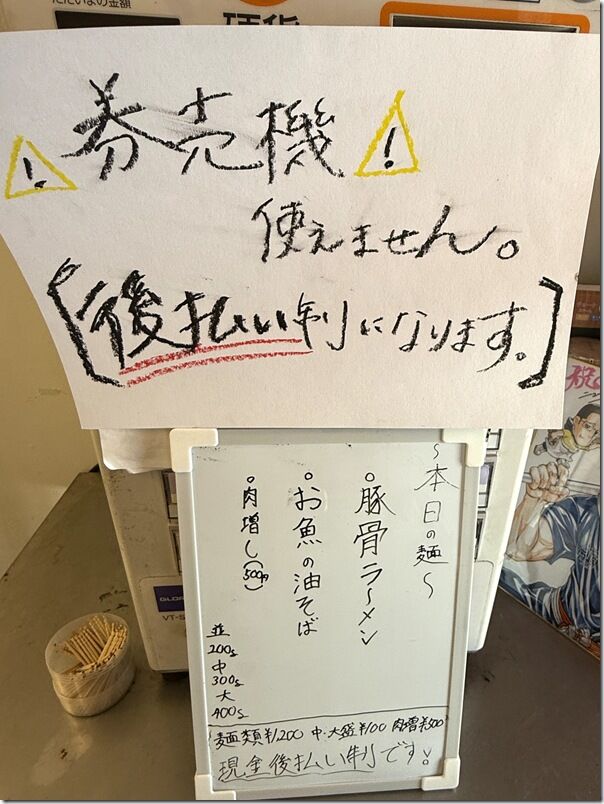 ただいまの金額
硬貨
券売機
使えません。
【後払い制になります。】
～本日の麺～
。豚骨ラーメン
。お魚の油そば
。肉増し(500円)
並
200g
中
300g
大
400g
麺類¥1,200 中・大盛¥100 肉増¥500
現金後払い制です!
GLORY
VT-S